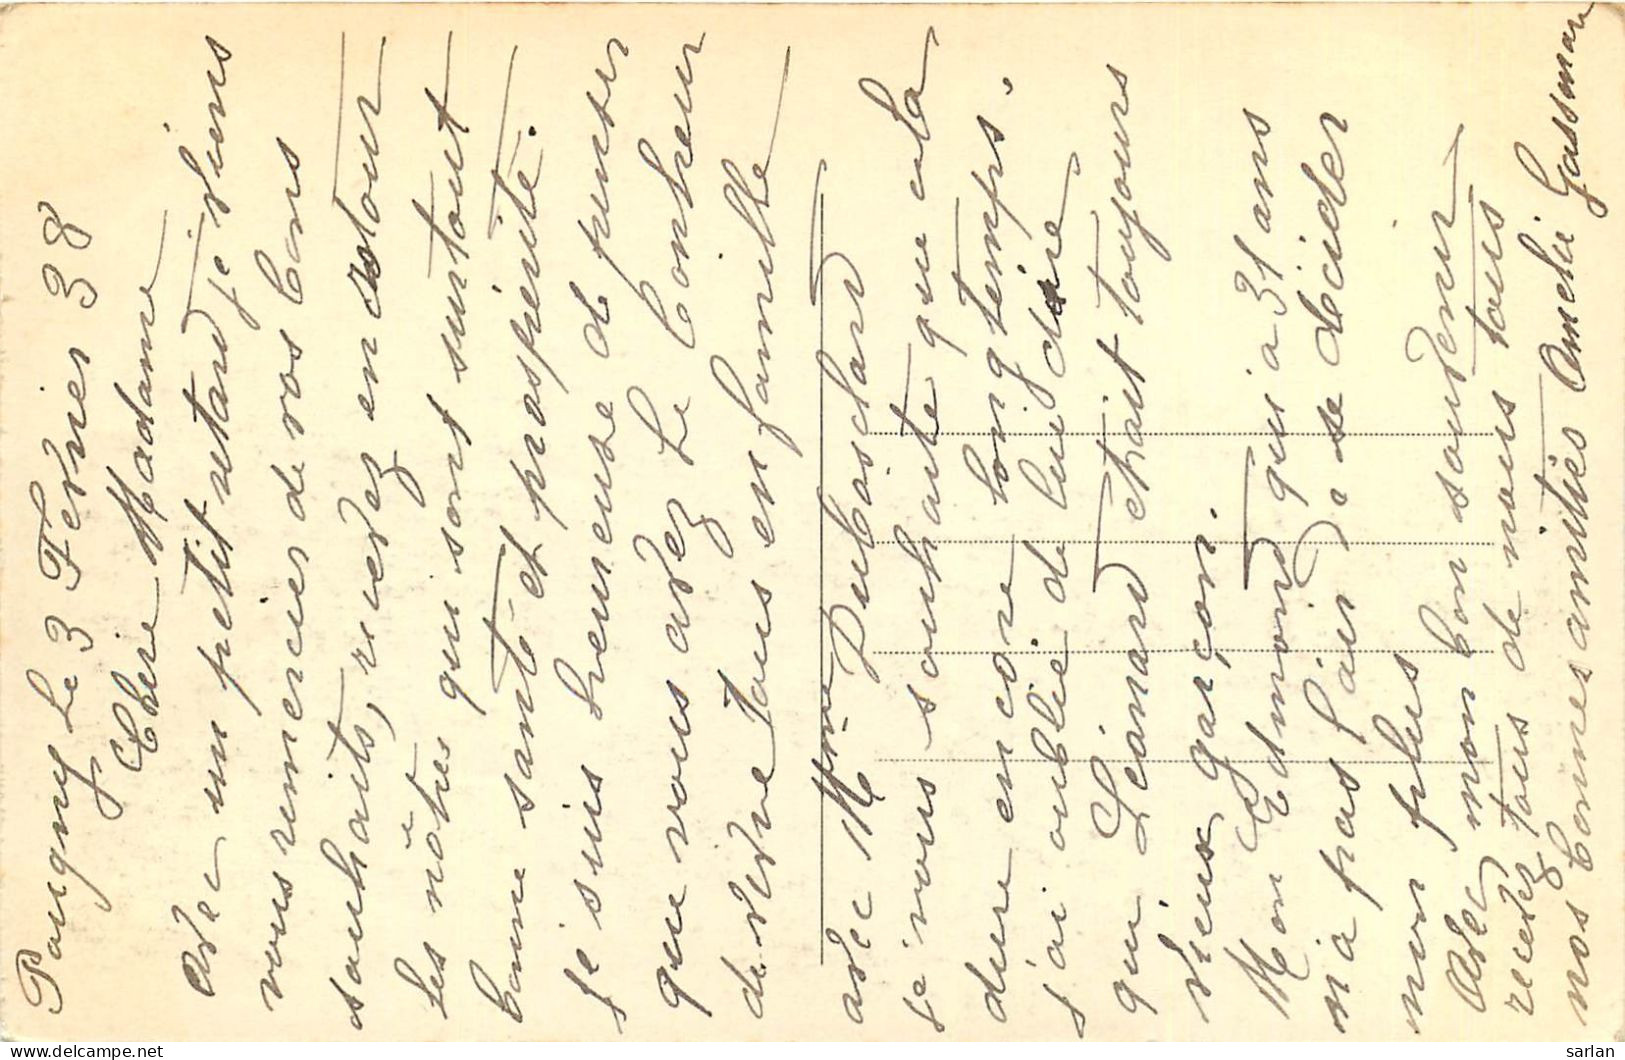 Pougny Le 3 Fevrier 38
Chère Madame
Avec un petit retard je viens
vous remercier de vos bons
souhaits, recevez en retour
les nôtres qui sont surtout
bonne santé et prospérité.
je suis heureuse de penser
que vous avez le bonheur
de vivre tous en famille
avec Mme Duboschard
je vous souhaite que cela
dure encore longtemps.
j'ai oublié de lui dire
que Léonard était toujours
vieux garçon.
Mon Edmond qui a 31 ans
n'a pas l'air de se décider
non plus
Avec mon bon souvenir
recevez tous de nous tous
nos bonnes amitiés Amelie Gassmann
sarlan